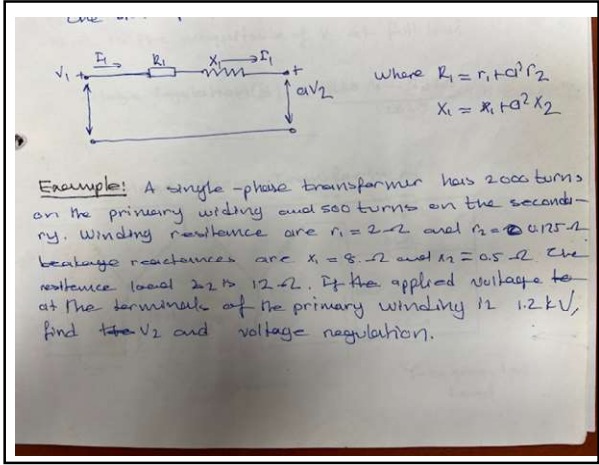 I₁ R₁ X₁ I₁
V₁ + + aV₂
where R₁ = r₁ + a²r₂
X₁ = x₁ + a²x₂
Example: A single-phase transformer has 2000 turns
on the primary widing and 500 turns on the seconda-
ry. Winding resitance are r₁ = 2 Ω and r₂ = 0.125 Ω
leakage reactances are x₁ = 8 Ω and x₂ = 0.5 Ω The
resitance load is 12 Ω. If the applied voltage
at the terminals of the primary winding is 1.2 kV,
find V₂ and voltage regulation.